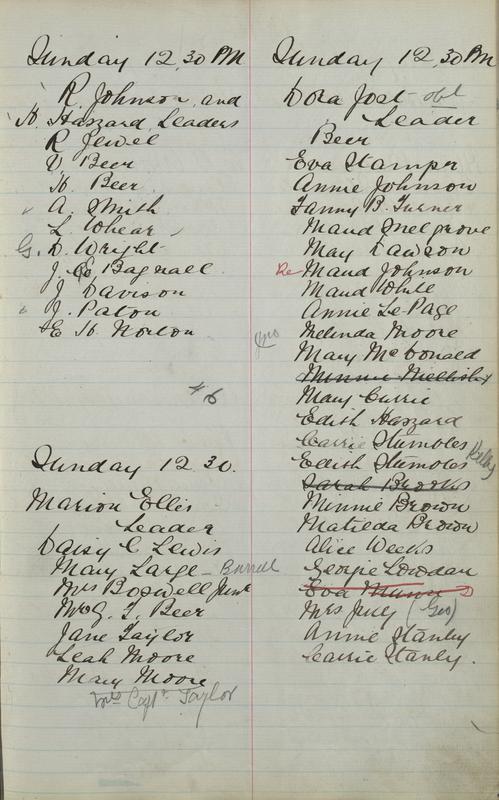 Sunday 12.30 PM
R. Johnson and
H. Haszard Leaders
R Jewel
V. Beer
H. Beer
A. Smith
L. Whear
G. D. Wright
J. Bagnall
J Davison
J. Paton
E H. Norton
46
Sunday 12 30.
Marion Ellis
Leader
Daisy C Lewis
Mary Large - Burrell
Mrs Boswell Junr
Mrs G. T. Beer
Jane Taylor
Leah Moore
Mary Moore
Mrs Capt. Taylor
Sunday 12,30 PM
Dora Jost
Leader
Beer
Eva Stamper
Annie Johnson
Fanny B. Turner
Maud Melgrove
May Dawson
Re Maud Johnson
Maud White
Annie Le Page
Melinda Moore
Mary McDonald
Minnie
Mary Currie
Edith Haszard
Carrie Stumbles
Edith Stumbles Kelly
Sarah Brooks
Minnie Brown
Matilda Brown
Alice Weeks
Georgie Lowdan
Eva
Mrs July (Geo)
Annie Stanley
Carrie Stanley.